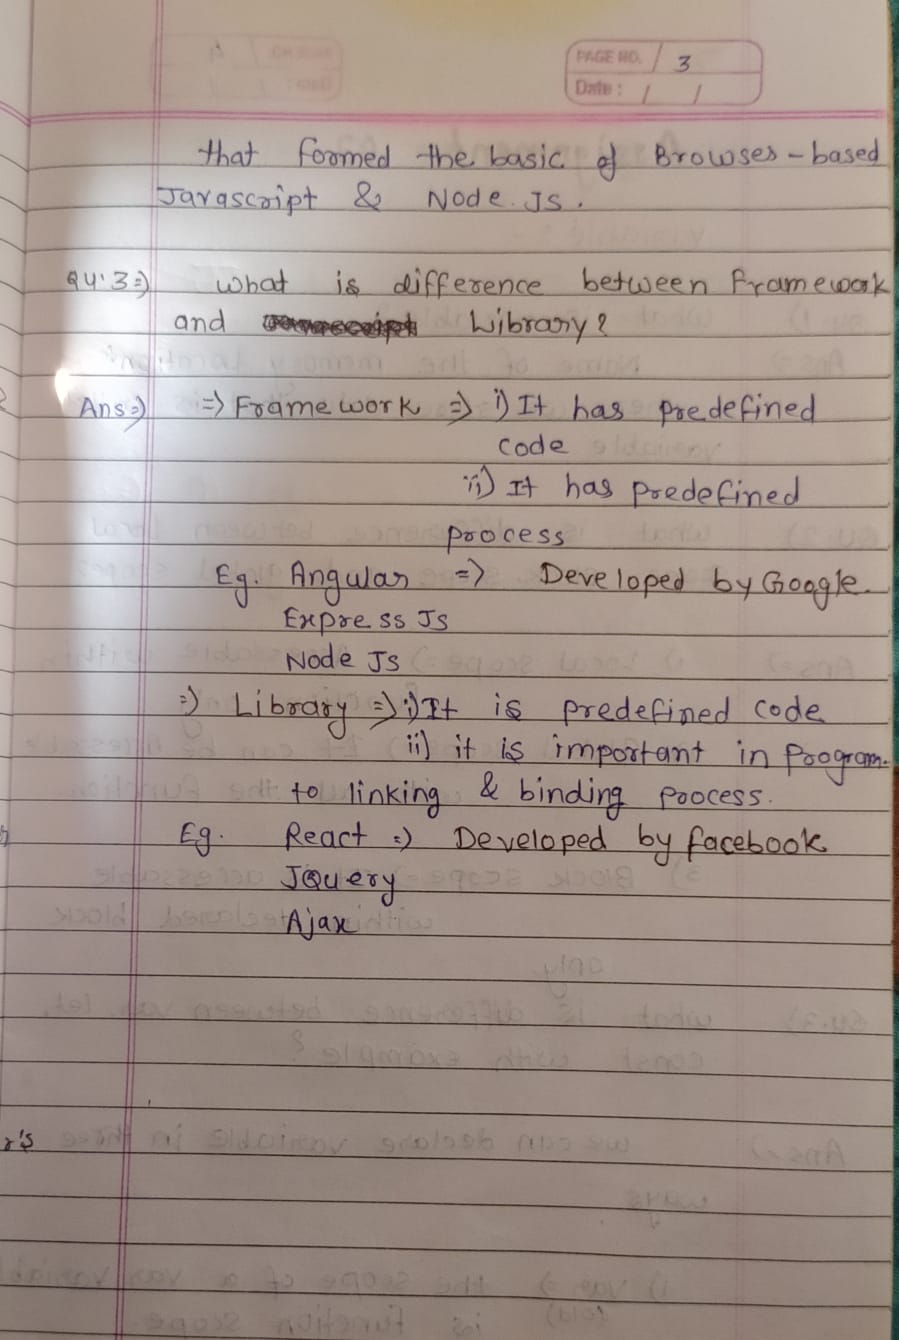 PAGE NO. 3
Date: / /
that formed the basic of Browser-based
Javascript & Node.Js.
Qu.3=) What is difference between framework
and Library?
Ans=) => Framework => i) It has predefined
code
ii) It has predefined
process
Eg. Angular => Developed by Google.
Express Js
Node Js
=> Library => i) It is predefined code
ii) it is important in program.
to linking & binding process.
Eg. React => Developed by facebook
JQuery
Ajax
r's